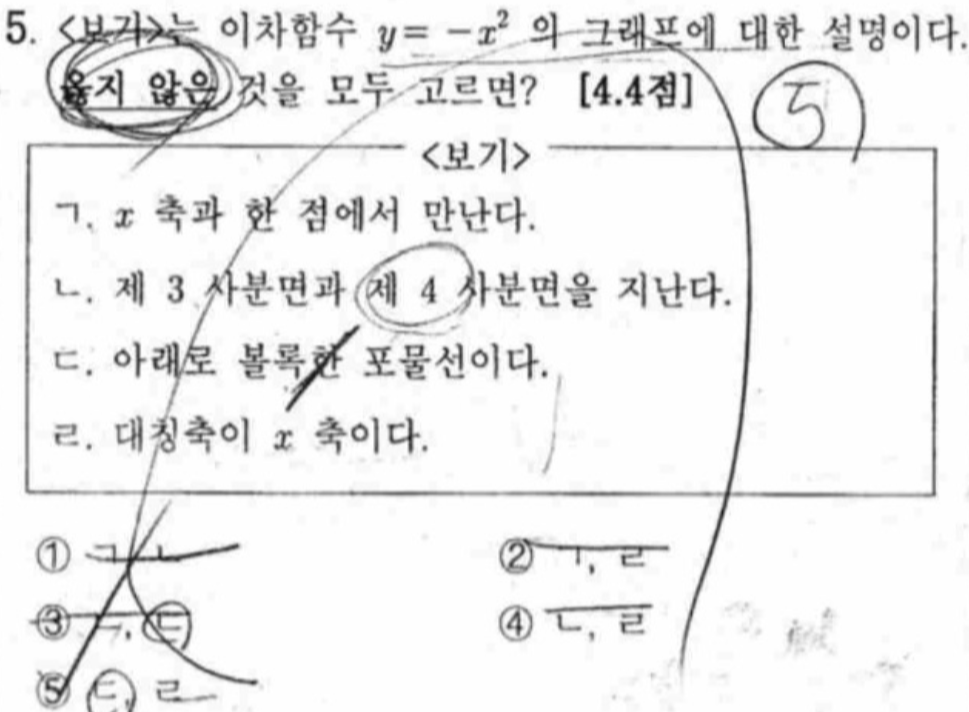 5. <보기>는 이차함수 y = -x² 의 그래프에 대한 설명이다.
옳지 않은 것을 모두 고르면? [4.4점]
5
<보기>
ㄱ. x 축과 한 점에서 만난다.
ㄴ. 제 3 사분면과 제 4 사분면을 지난다.
ㄷ. 아래로 볼록한 포물선이다.
ㄹ. 대칭축이 x 축이다.
① ㄱ, ㄴ ② ㄱ, ㄹ
③ ㄴ, ㄷ ④ ㄴ, ㄹ
⑤ ㄷ, ㄹ